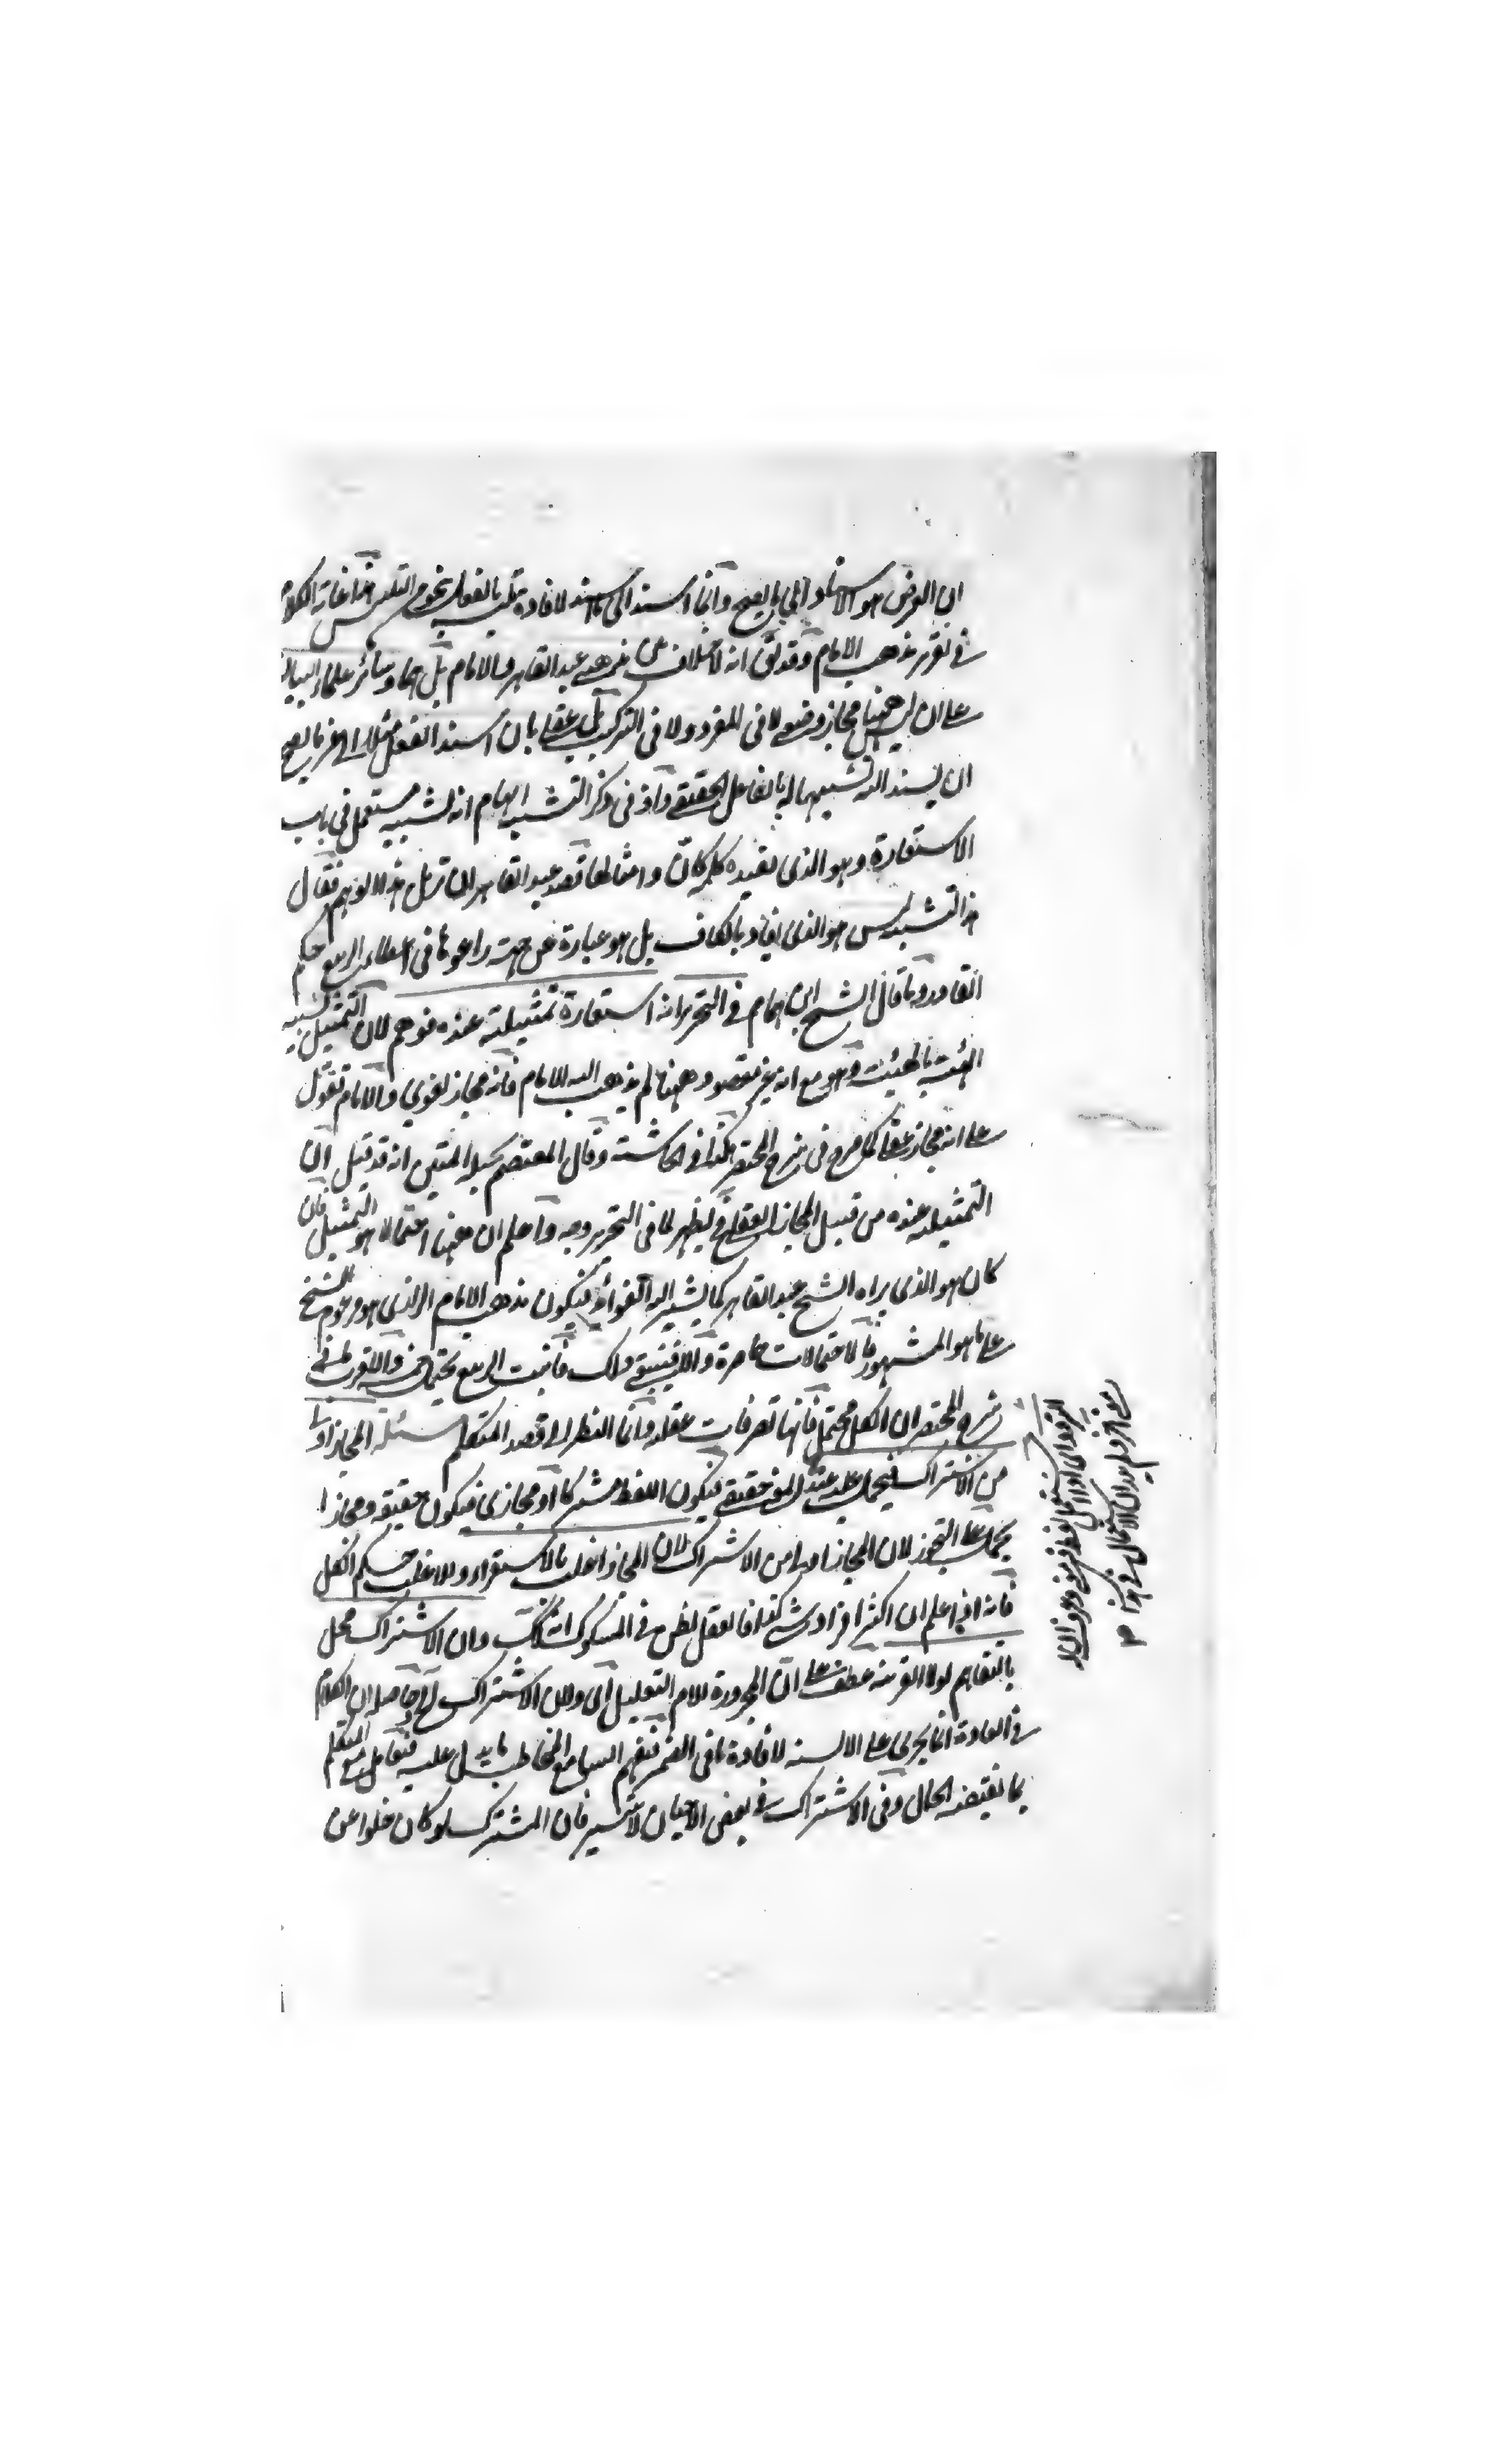 ان الغرض هو الاسناد الى ما يصح وانما اسند الى ما اسند لافادة تلبس بالفعل بنحو من التلبس هذا غاية الكلام
في تقرير مذهب الامام وقد لاح انه لا خلاف بين مذهبي عبد القاهر والامام بل هما وسائر علماء البيان
على ان ليس ههنا مجاز وضعي لا في المفرد ولا في التركيب بل عقلي بان اسند الفعل مثلا الى غير ما يصح
ان يسند اليه تشبيها له بالفاعل الحقيقي واذ في ذكر التشبيه ايهام انه تشبيه مستعمل في باب
الاستعارة وهو الذي يفيده كلمة كان وامثالها قصد عبد القاهر ان تزيل هذا لوهم فقال
هذا التشبيه ليس هو الذي يفاد بالكاف بل هو عبارة عن جهة راعوها في اعطاء الربيع حكم
القادر وما قال الشيخ ابن الهمام في التحرير انه استعارة تمثيلية عنده فوهم لان التمثيل تشبيه
الهيئة بالهيئة وهو مع انه غير مقصود ههنا لم يذهب اليه الامام فانه مجاز لغوي والامام
على انه مجاز عقلي كما صرح في شرح المختصر هكذا في الحاشية وقال المعتصم بحبل المتين انه قد قيل ان
التمثيلية عنده من قبيل المجاز العقلي فح يظهر لما في التحرير وجه واعلم ان ههنا احتمالا هو التمثيل فان
كان هو الذي يراه الشيخ عبد القاهر كما يشير اليه الفوائد فيكون مذهب الامام الرازي هو مزعوم الشيخ
على ما هو المشهور فالاحتمالات حاصرة والا فيبقى ذاك فانبت الربيع يحتمل خمسة والاقرب ما في
شرح المختصر ان الكل محتمل فانها تصرفات عقلية وانما النظر الى قصد المتكلم مسئلة المجاز اولى
من الاشتراك فيحمل عليه عند المعنى حقيقي فيكون اللفظ مشتركا او مجازي فيكون حقيقة ومجازا
يحمل على التجوز لان المجاز اولى من الاشتراك لان المجاز اغلب بالاستقراء وللاغلب حكم الكل
فانه اذا علم ان اكثر افراد شي كذا فالعقل يظن في المشكوك انه كك وان الاشتراك مخل
بالتفاهم لولا القرينة عطف على ان المجرورة بلام التعليل اي ولان الاشتراك الخ حاصله ان الكلام
في العادة انما يجري على الالسنة لافادة ما في الضمير فيفهم السامع المخاطب ما يدل عليه فيعامل مع المتكلم
بما يقتضيه الحال وفي الاشتراك في بعض الاحيان لا يتيسر فان المشترك لو كان خلوا عن